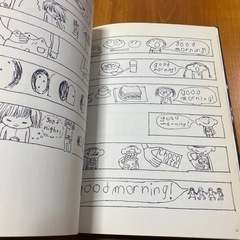 good
night!
good
morning!
good
morning!
good
morning!
good
morning!
good morning!